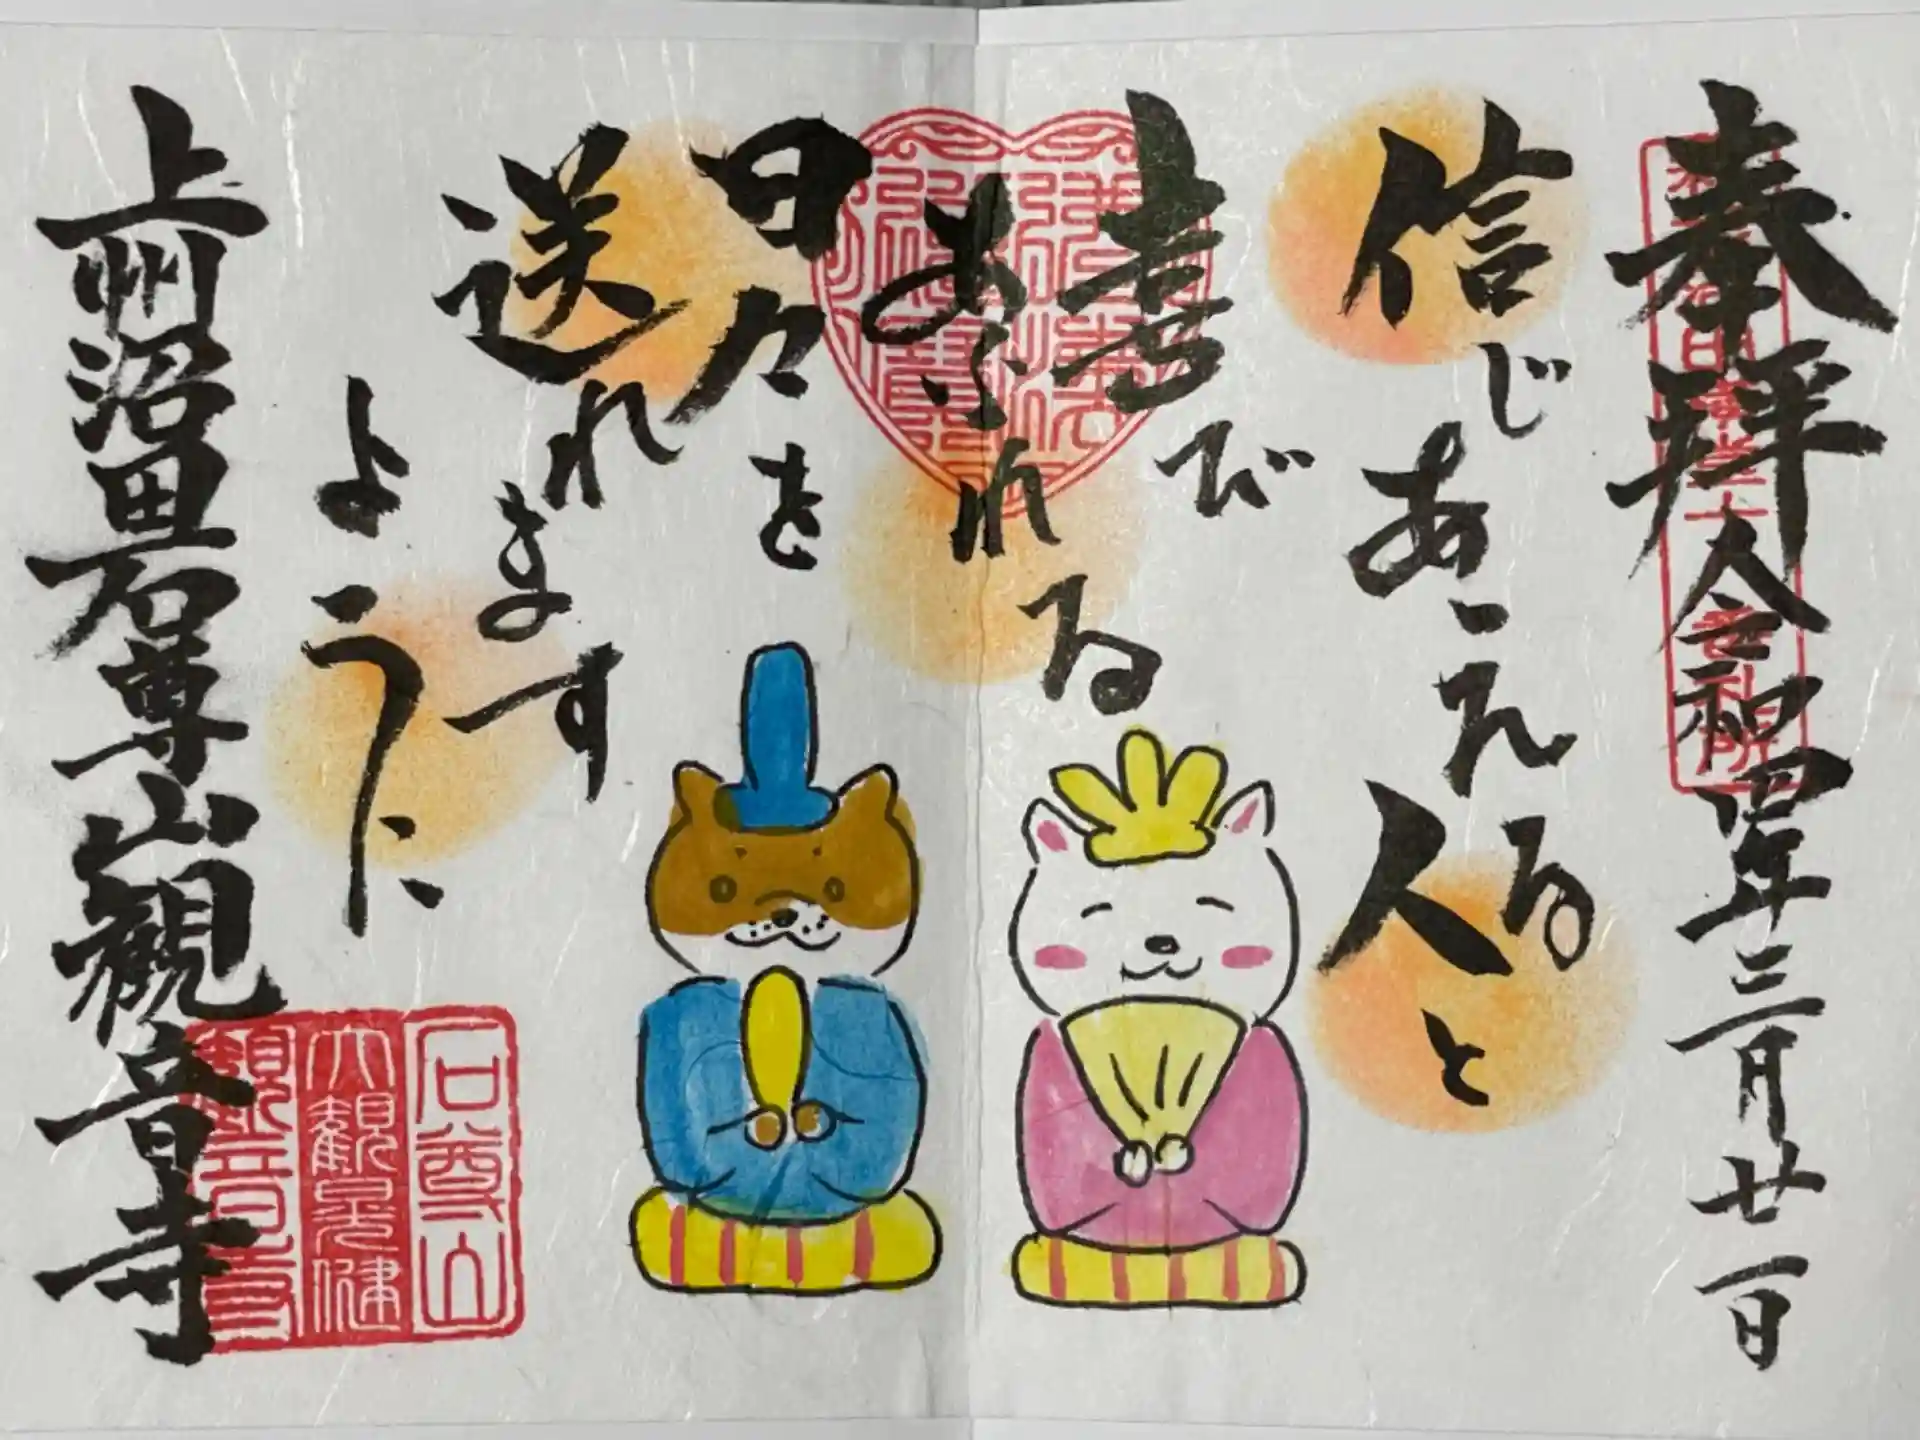 奉拝 令和四年三月廿一日
信じあえる人と
喜び
あふれる
日々を
送れます
ように
上州沼田石尊山観音寺
石尊山
観音寺